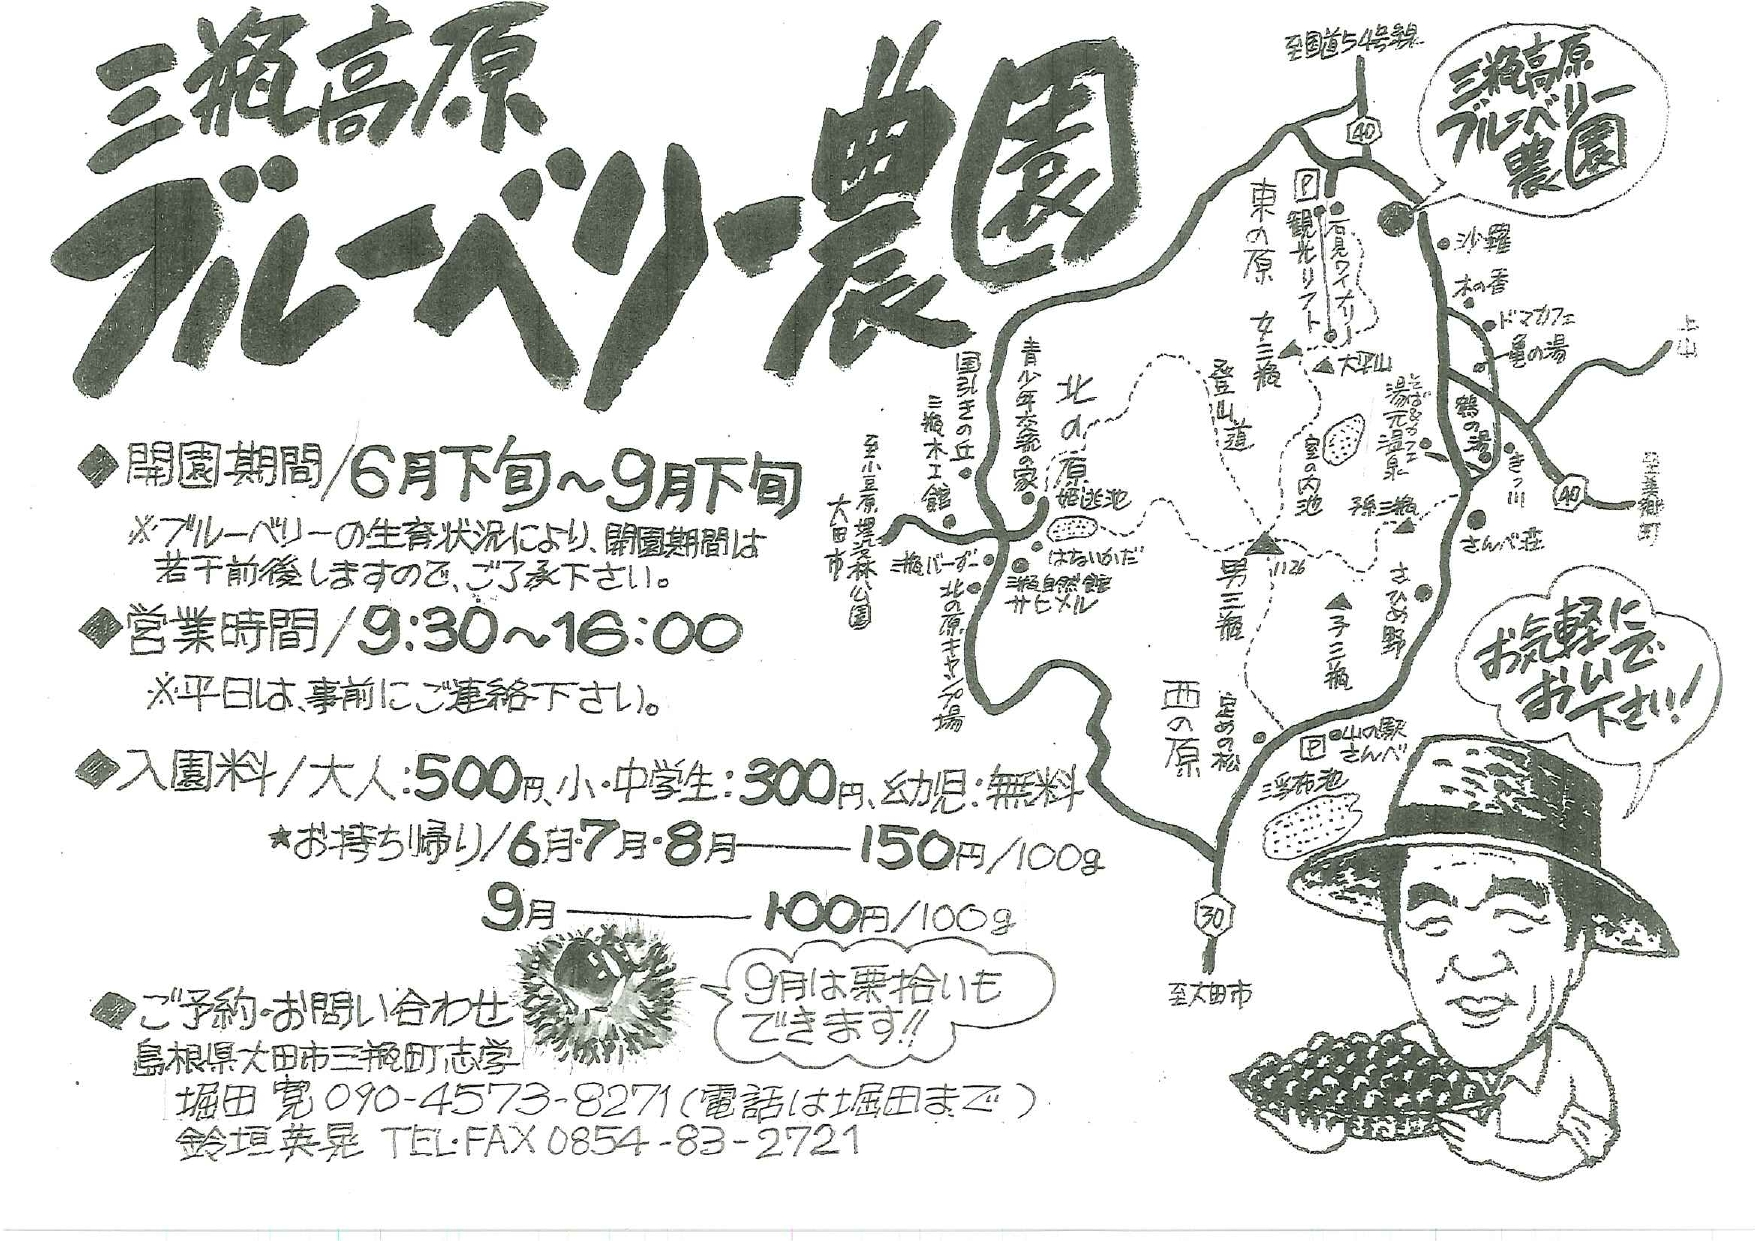 三瓶高原
ブルーベリー農園
◆開園期間/6月下旬〜9月下旬
※ブルーベリーの生育状況により、開園期間は
若干前後しますので、ご了承下さい。
◆営業時間/9:30〜16:00
※平日は、事前にご連絡下さい。
◆入園料/大人:500円、小・中学生:300円、幼児:無料
★お持ち帰り/6月・7月・8月――150円/100g
9月――100円/100g
9月は栗拾いも
できます!!
◆ご予約・お問い合わせ
島根県大田市三瓶町志学
堀田 寛 090-4573-8271(電話は堀田まで)
鈴垣英晃 TEL・FAX 0854-83-2721
至国道54号線
40
三瓶高原
ブルーベリー
農園
東の原
P
観光リフト
石見ワイナリー
沙羅
木の香
ドマカフェ
亀の湯
上山
女三瓶
大平山
登山道
室の内池
そば&カフェ
湯元温泉
鶴の湯
きっ川
40
至美郷町
孫三瓶
さんべ荘
国引きの丘
青少年交流の家
北の原
三瓶木工館
姫逃池
はないかだ
至小豆原埋没林公園
大田市
三瓶バーガー
三瓶自然館
サヒメル
北の原キャンプ場
男三瓶
1126
子三瓶
さひめ野
西の原
定めの松
P
山の駅
さんべ
浮布池
30
至大田市
お気軽に
おいで
下さい!